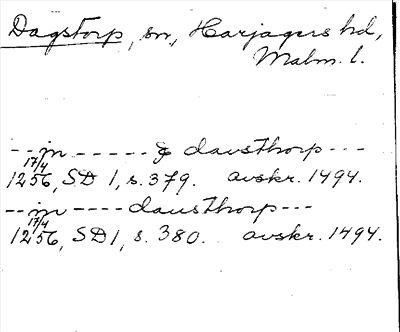 Dagstorp, sn, Harjagers hd,
Malm. l.
--in ----- & dausthorp ---
17/4
1256, SD 1, s. 379. avskr. 1494.
--in ---- dausthorp ---
17/4
1256, SD 1, s. 380. avskr. 1494.